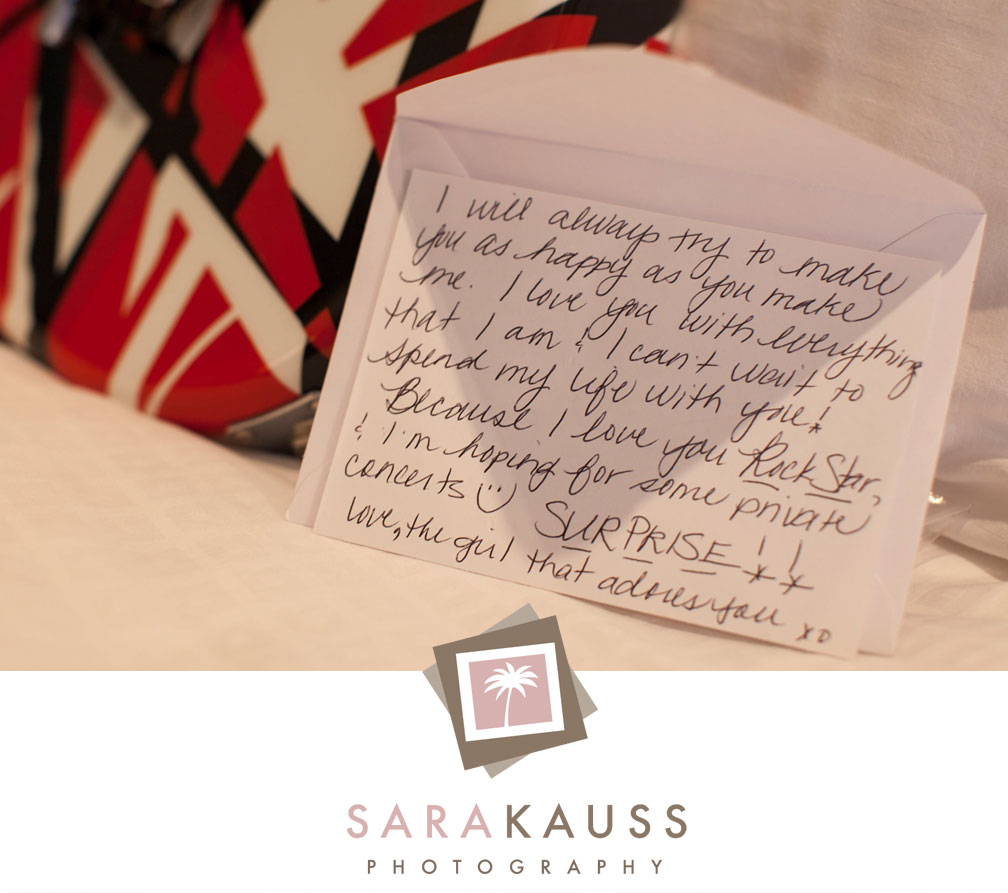 I will always try to make
you as happy as you make
me. I love you with everything
that I am & I can't wait to
spend my life with you!
Because I love you RockStar,
& I'm hoping for some private
concerts :)
SURPRISE!!
love, the girl that adores you xo
SARAKAUSS
PHOTOGRAPHY